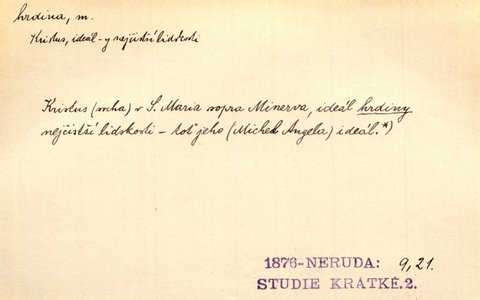 hrdina, m.
Kristus, ideál-y nejčistší lidskosti
Kristus (socha) v S. Maria sopra Minerva, ideál hrdiny
nejčistší lidskosti – toť jeho (Michel Angela) ideál.*)
1876-NERUDA: 9,21.
STUDIE KRÁTKÉ.2.